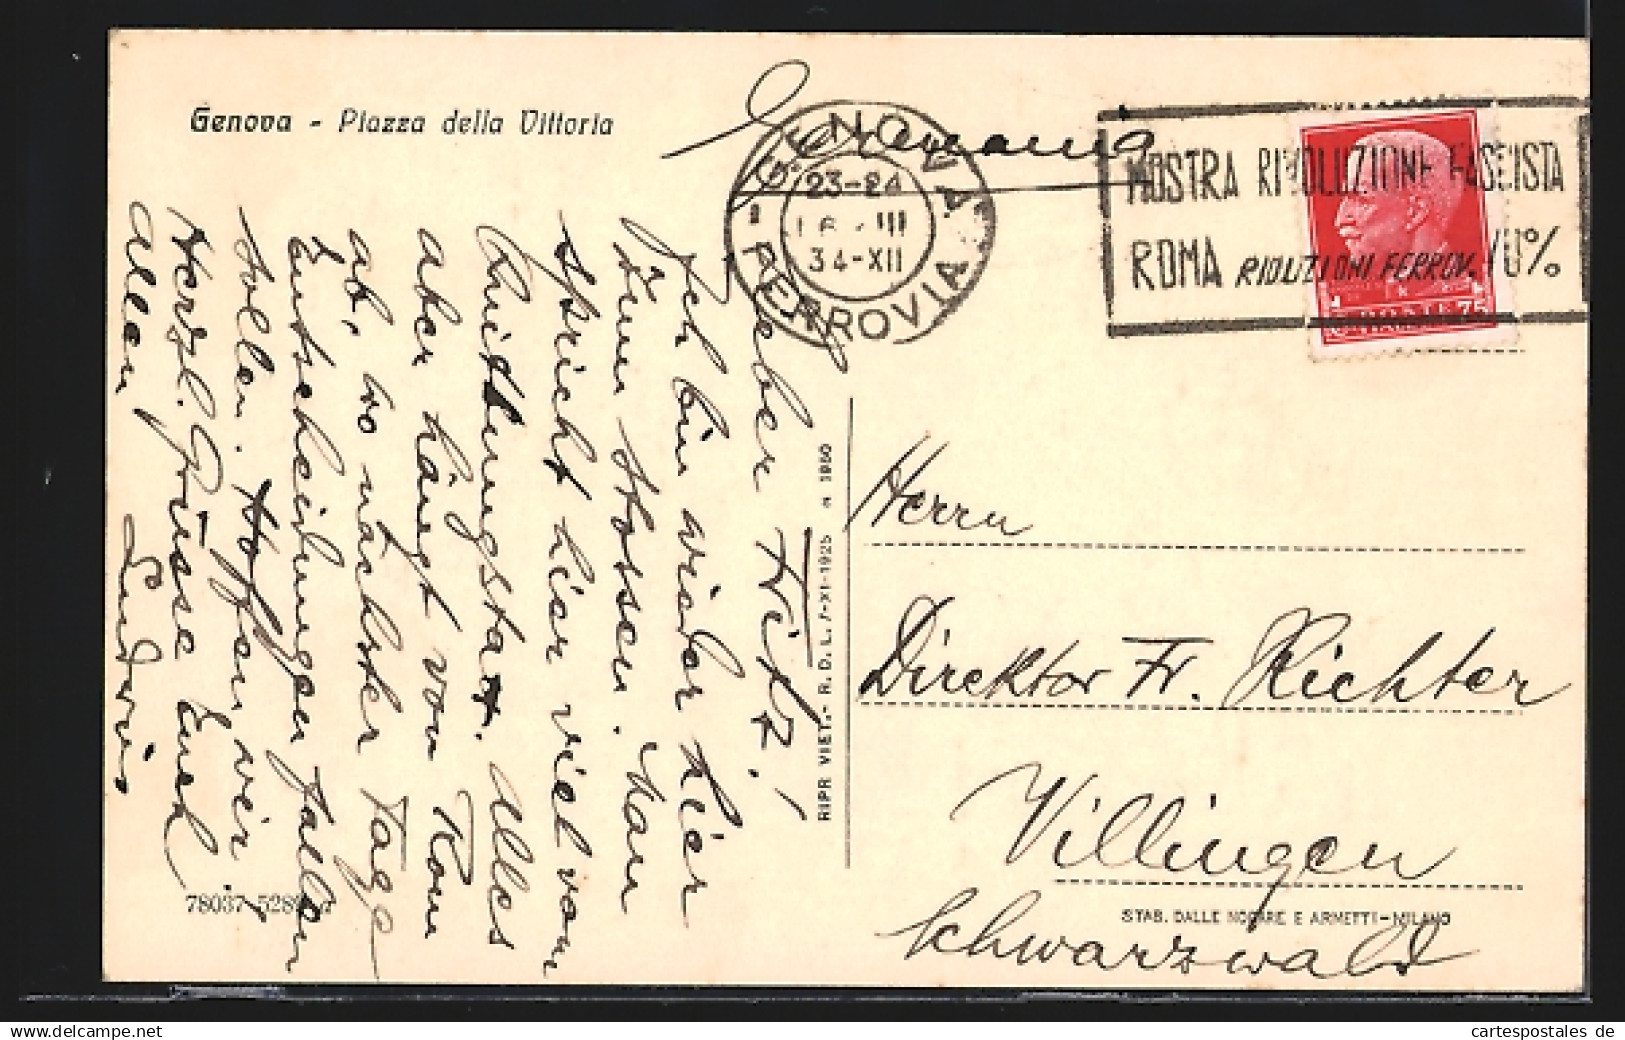 Genova - Piazza della Vittoria
Germania
GENOVA
FERROVIA
23-24
III
34-XII
MOSTRA RIVOLUZIONE FASCISTA
ROMA RIDUZIONI FERROV. 70%
POSTE 75
Lieber Fritz!
Ich bin wieder hier
zum Stossen. Man
spricht hier viel vom
aber hängt von Rom
ab, wo nächster Tage
Entscheidungen fallen
sollen. Hoffen wir!
Herzl. Grüsse Euch
Allen Ludwig
RIPR VIET.-R.D.L. 7-XI-1925 N 1950
Herrn
Direktor Fr. Richter
Villingen
Schwarzwald
STAB. DALLE NOGARE E ARMETTI-MILANO
78037
cartespostales de